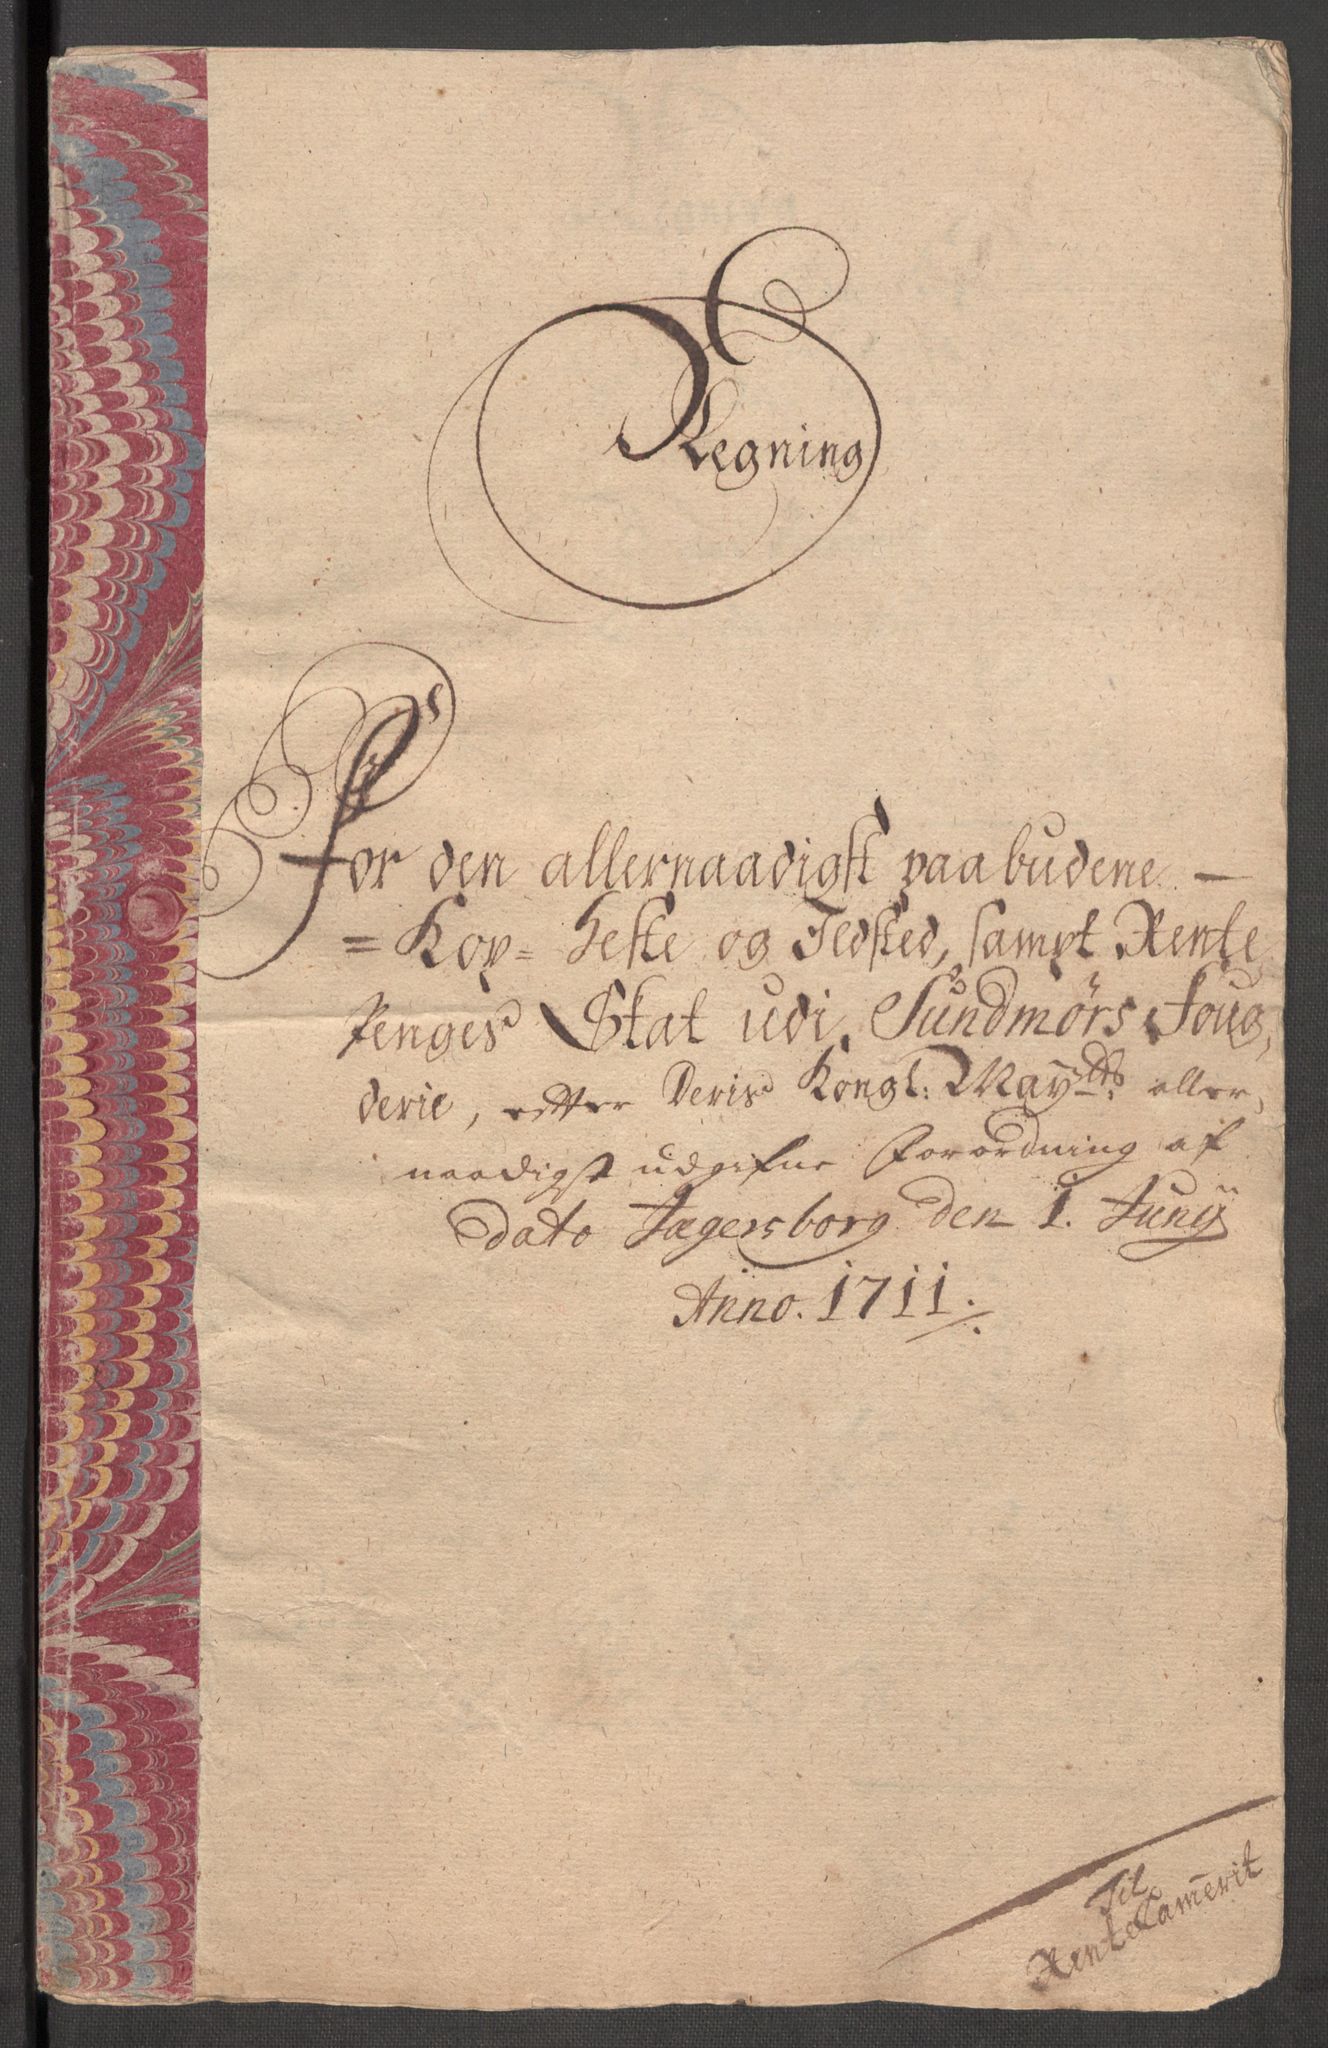 Regning
For den allernaadigst paabudene —
= Kop= Heste og Ildsted, sampt Rente
Penges Skat udi Sundmørs Foug,
derie, efter Deris Kongl: Mayᵗᵗˢ aller,
naadigst udgifne Forordning af
Dato Jægersborg den 1. Junij
Anno. 1711.
Til
RenteCam̄erit